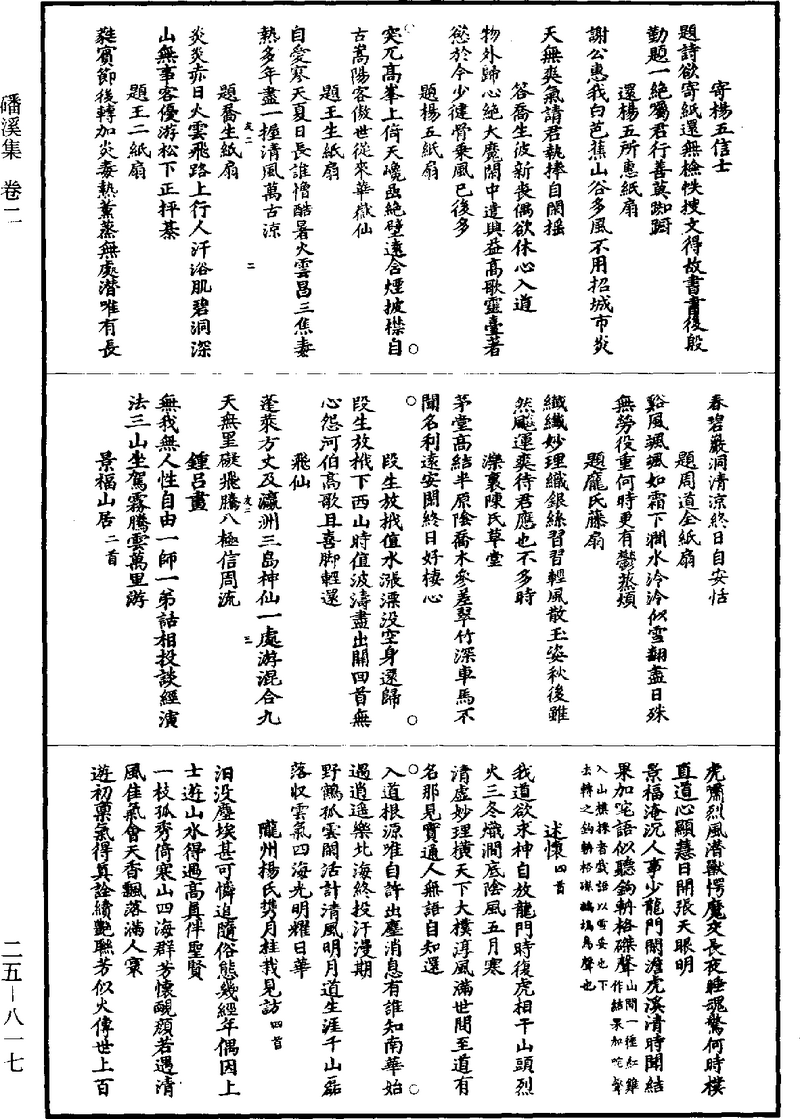 寄楊五信士
題詩欲寄紙還無檢帙搜文得故書書後殷
勤題一絕囑君行善莫踟躕
還楊五所惠紙扇
謝公惠我白芭蕉山谷多風不用招城市炎
天無爽氣請君執捧自閑搖
答喬生彼新喪偶欲休心入道
物外歸心絕大魔閑中遣興益高歌靈臺著
慾於今少健骨乘風已後多
題楊五紙扇
突兀高峯上倚天巉嵒絕壁遠含煙披襟自
古嵩陽客傲世從來華嶽仙
題王生紙扇
自愛寒天夏日長誰憎酷暑火雲昌三焦毒
熱多年盡一握清風萬古涼
題喬生紙扇
炎炎赤日火雲飛路上行人汗浴肌碧洞深
山無事客優游松下正抨棊
題王二紙扇
蕤賓節後轉加炎毒熱薰蒸無處潜唯有長
春碧巖洞清涼終日自安恬
題周道全紙扇
谿風颯颯如霜下澗水泠泠似雪翻盡日殊
無勞役重何時更有鬱蒸煩
題龐氏藤扇
纖纖妙理織銀絲習習輕風散玉姿秋後雖
然颭運奕待君應也不多時
濼裏陳氏草堂
茅堂高結半原陰喬木參差翠竹深車馬不
聞名利遠安閑終日好棲心
段生放栰值水漲漂没空身還歸
段生放栰下西山時值波濤盡出關回首無
心怨河伯高歌且喜脚輕還
飛仙
蓬萊方丈及瀛洲三島神仙一處游混合九
天無罣礙飛騰八極信周流
鍾吕畫
無我無人性自由一師一弟話相投談經演
法三山坐駕霧騰雲萬里游
景福山居二首
虎嘯烈風潜獸愕魔交長夜睡魂驚何時樸
直道心顯慧日開張天眼明
景福淹沉人事少龍門閑澹虎溪清時聞結
果加咜語似聽鈎輈格磔聲山間一種紅雞作結果加咜聲
述懷四首
我道欲求神自放龍門時復虎相干山頭烈
火三冬熾澗底陰風五月寒
清虚妙理橫天下大樸淳風滿世間至道有
名那見實通人無語自知還
入道根源唯自許出塵消息有誰知南華始
遇逍遥樂北海終投汗漫期
野鶴孤雲閑活計清風明月道生涯千山磊
落収雲氣四海光明耀日華
隴州楊氏㷀月桂栽見訪四首
汨没塵埃甚可憐追隨俗態幾經年偶因上
士遊山水得遇高真伴聖賢
一枝孤秀倚寒山四海群芳懷醜顔若遇清
風佳氣會天香飄落滿人寰
遊初稟氣得真詮續艷聯芳似火傳世上百
磻溪集 卷二
二五－八一七